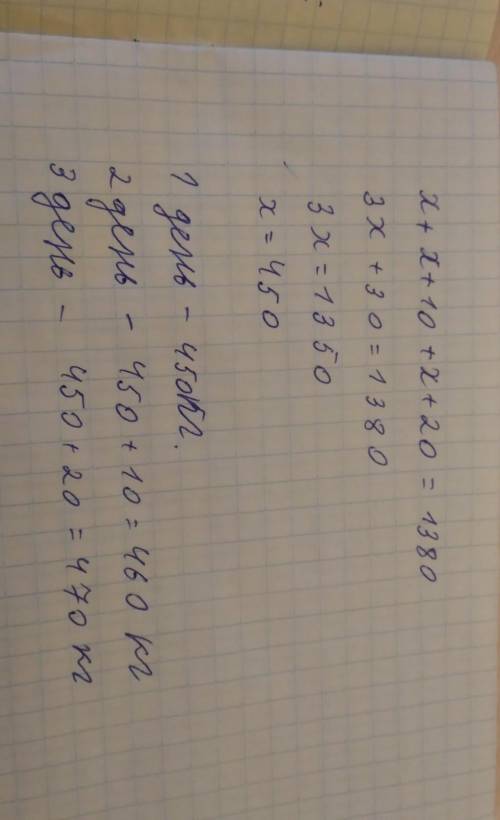 x + x + 10 + x + 20 = 1380
3x + 30 = 1380
3x = 1350
x = 450
1 день - 450кг.
2 день - 450 + 10 = 460 кг
3 день - 450 + 20 = 470 кг